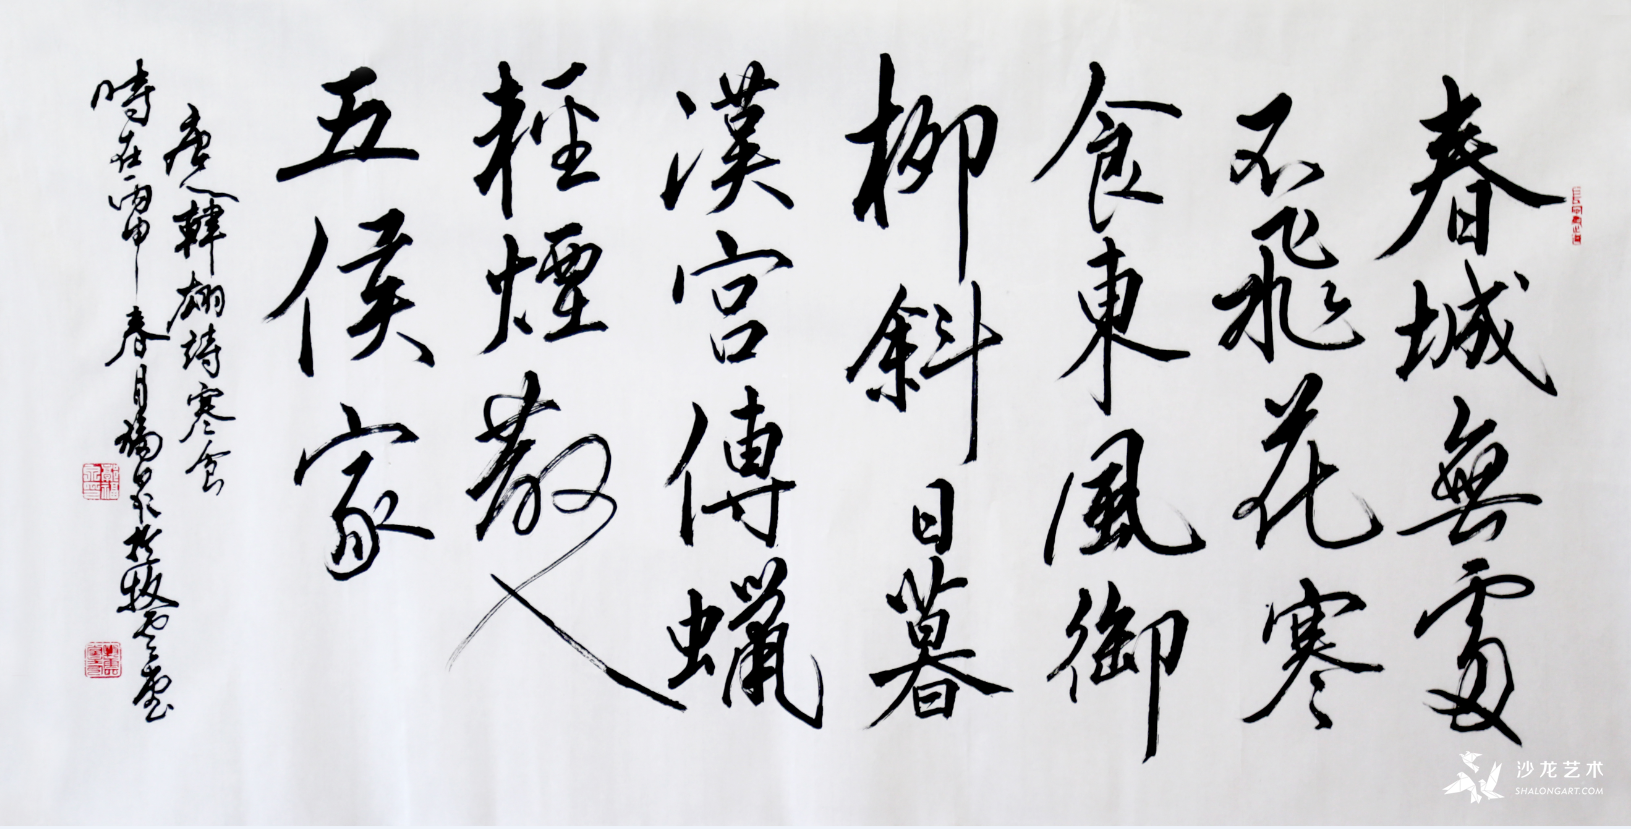 春城無處
不飛花寒
食東風御
柳斜日暮
漢宮傳蠟
輕煙散入
五侯家
唐人韓翃詩寒食
時在丙申春月福泉於雲堂
沙龙艺术
SHALONGART.COM